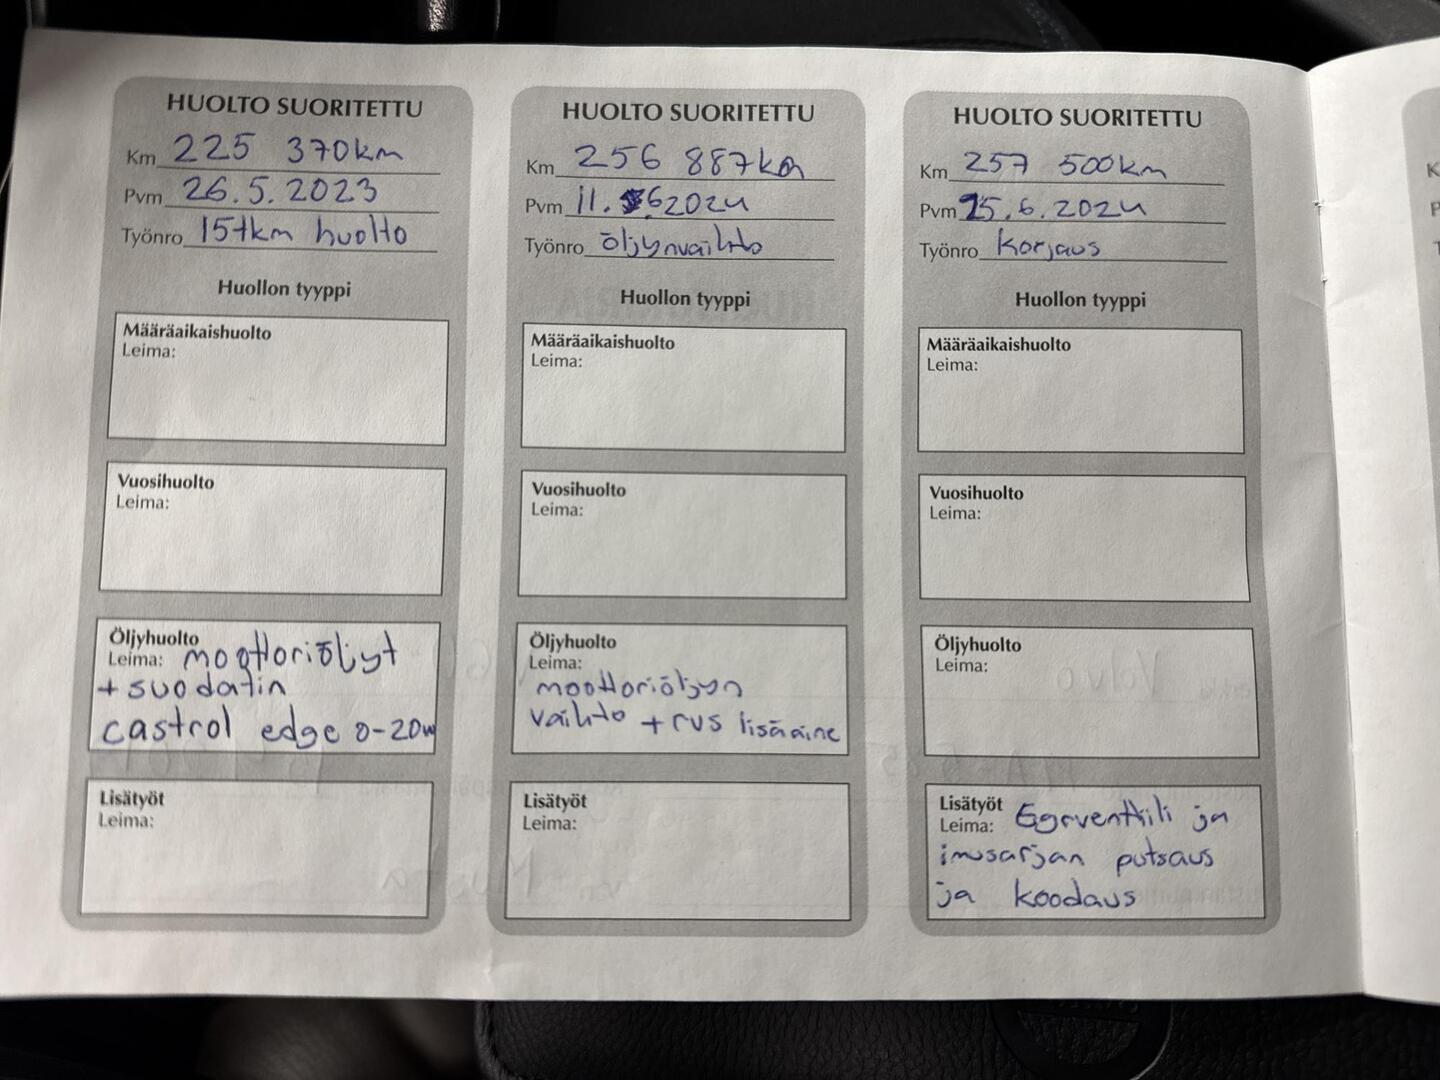 HUOLTO SUORITETTU
Km 225 370km
Pvm 26.5.2023
Työnro 15tkm huolto
Huollon tyyppi
Määräaikaishuolto
Leima:
Vuosihuolto
Leima:
Öljyhuolto
Leima: moottoriöljyt
+ suodatin
castrol edge 0-20w
Lisätyöt
Leima:
HUOLTO SUORITETTU
Km 256 887km
Pvm 11.6.2024
Työnro öljynvaihto
Huollon tyyppi
Määräaikaishuolto
Leima:
Vuosihuolto
Leima:
Öljyhuolto
Leima:
moottoriöljyn
vaihto + rvs lisäaine
Lisätyöt
Leima:
HUOLTO SUORITETTU
Km 257 500km
Pvm 15.6.2024
Työnro Korjaus
Huollon tyyppi
Määräaikaishuolto
Leima:
Vuosihuolto
Leima:
Öljyhuolto
Leima:
Lisätyöt
Leima: Egrventtiili ja
imusarjan putsaus
ja koodaus